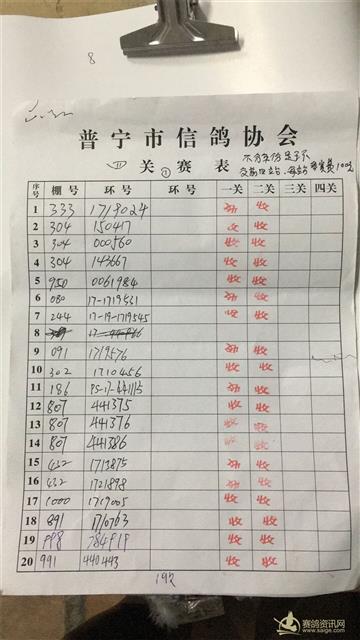 8
普宁市信鸽协会
四关赛表 ①
序号 棚号 环号 环号 一关 二关 三关 四关
1 333 1719024 收
2 304 150417 收 收
3 304 000560 收 收
4 304 143667 收 收
5 950 0061984 收 收
6 080 17-1719531 收
7 244 17-19-1719545 收 收
8
9 091 1719576 收
10 302 1710456 收 收
11 186 收
12 807 441375 收 收
13 807 441376 收 收
14 807 441386 收 收
15 432 1713875 收
16 432 1721898 收
17 1000 1719005 收 收
18 891 1710763 收 收
19 998 784919 收 收
20 991 440443 收 收
赛鸽资讯网
www.saige.com